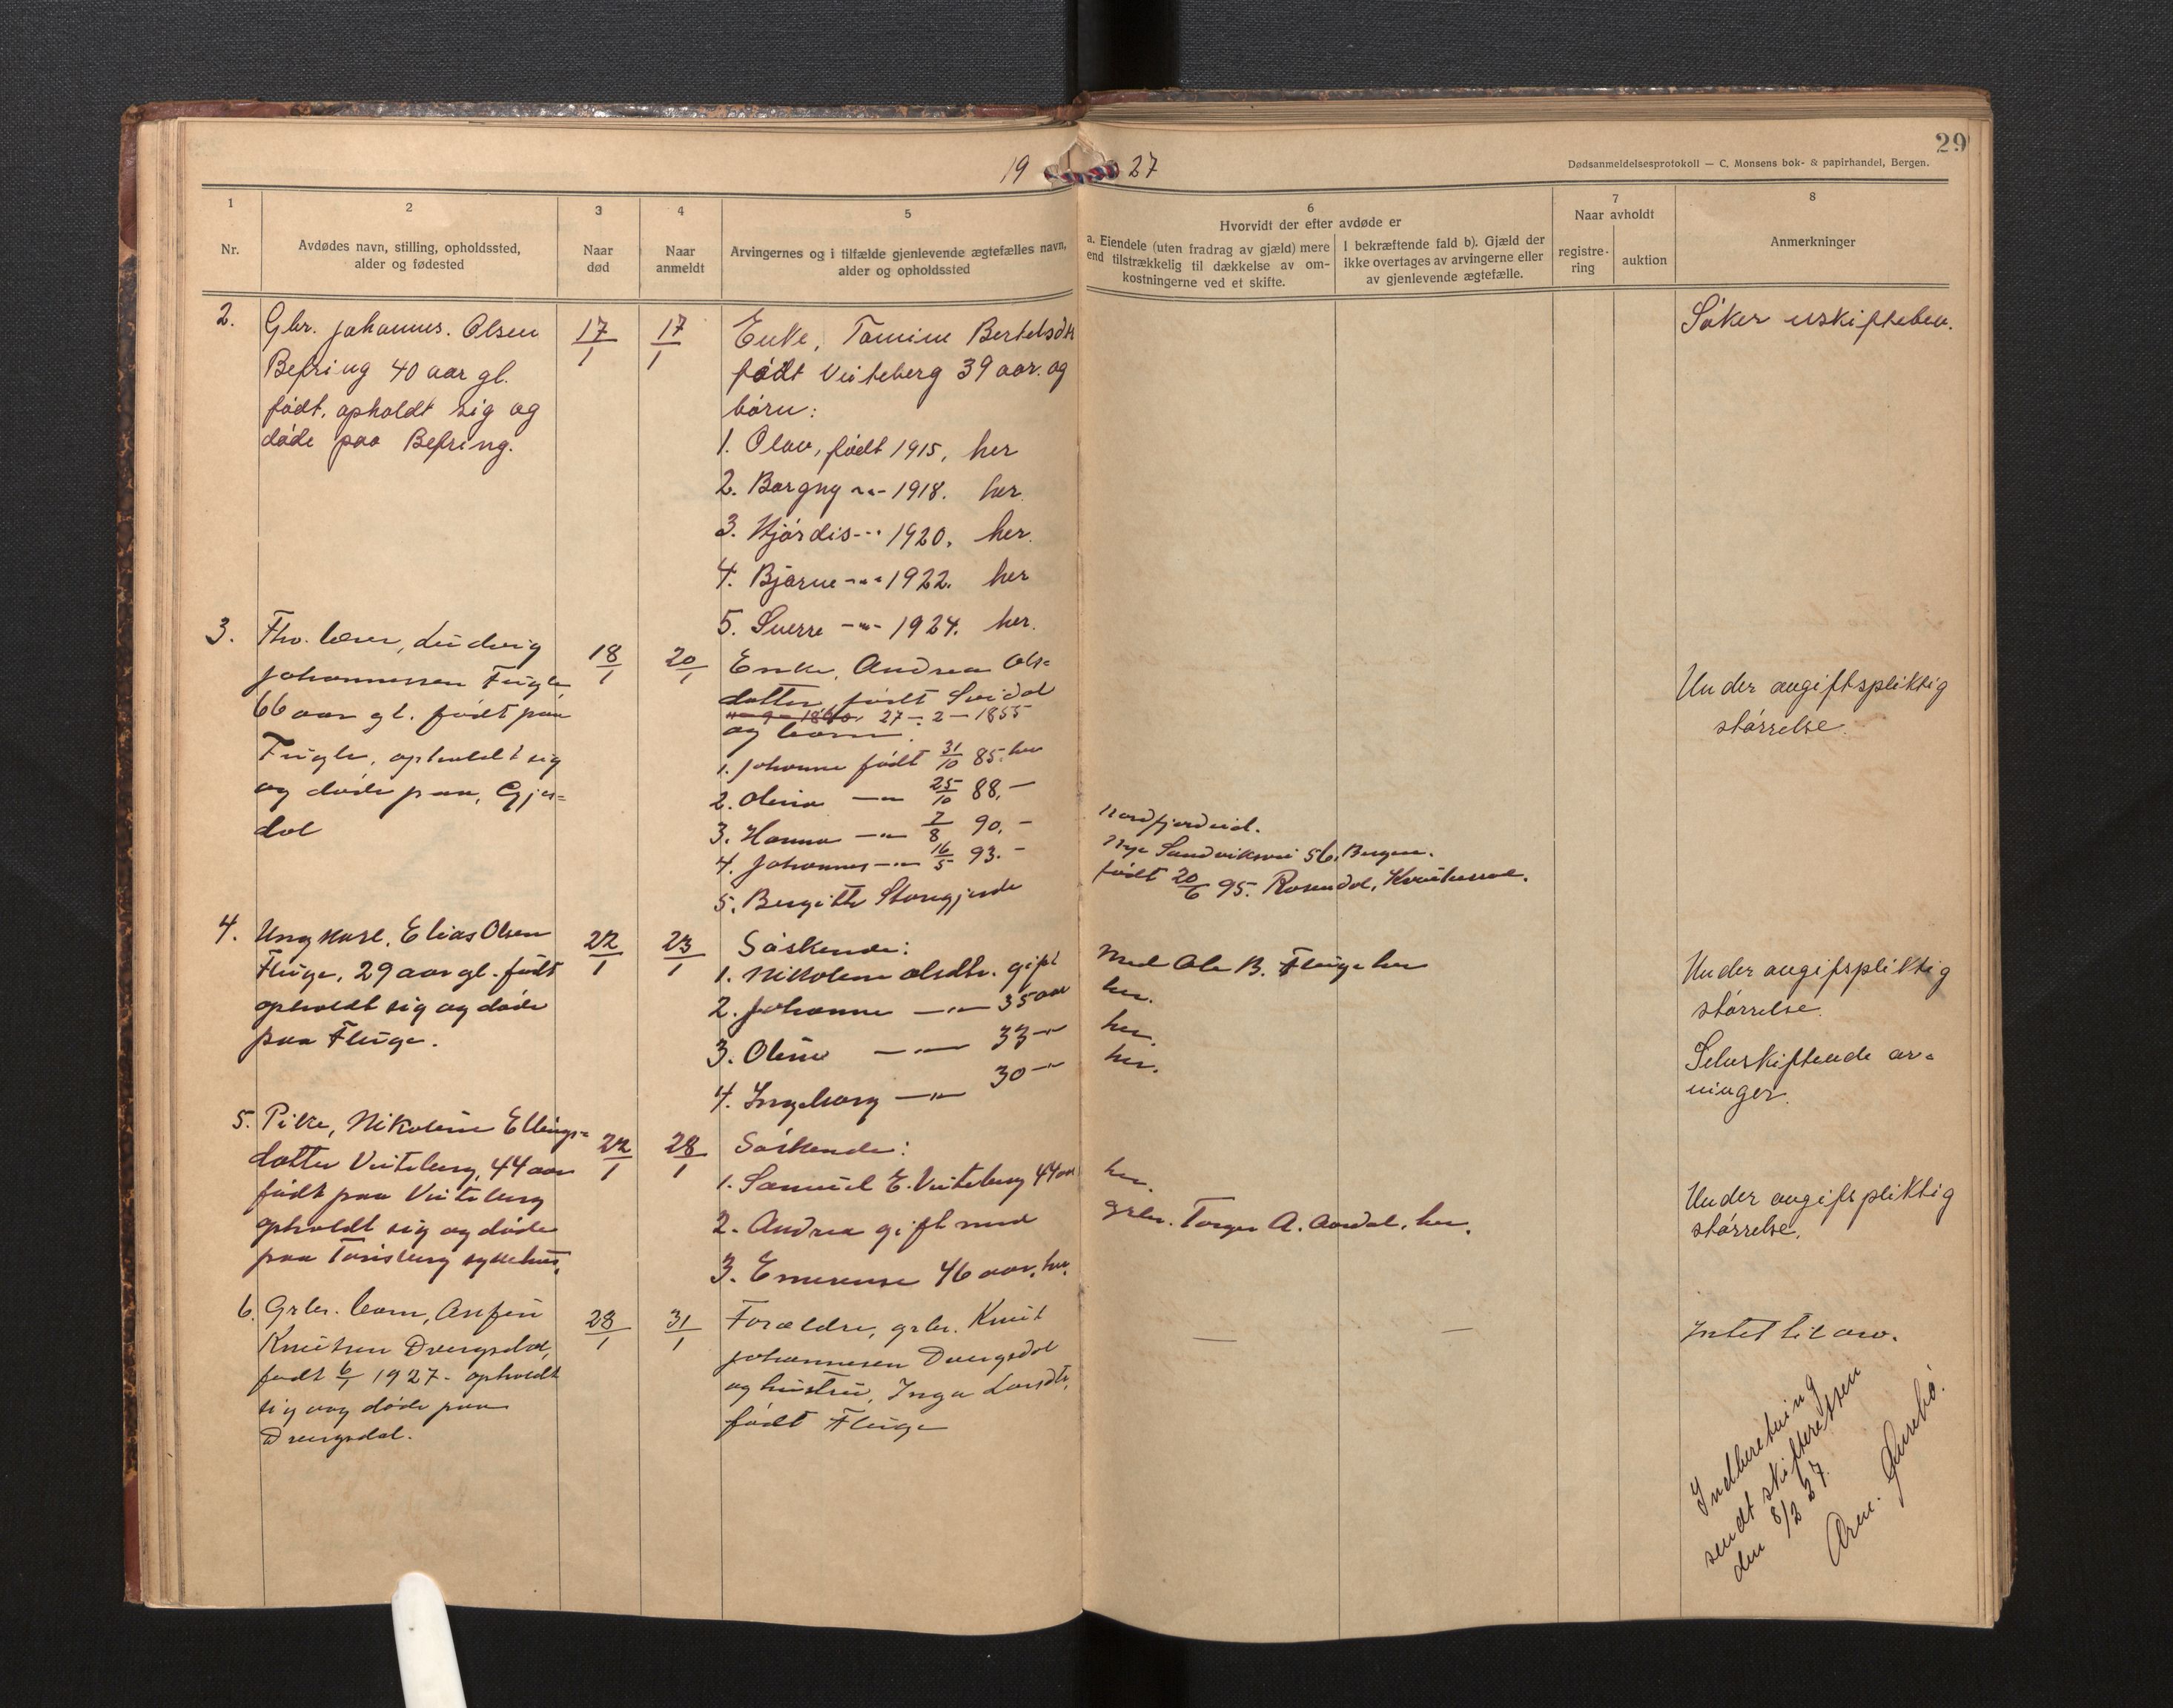 29
Dødsanmeldelsesprotokoll — C. Monsens bok- & papirhandel, Bergen.
19 27
1
Nr.
2
Avdødes navn, stilling, opholdssted,
alder og fødested
3
Naar
død
4
Naar
anmeldt
5
Arvingernes og i tilfælde gjenlevende ægtefælles navn,
alder og opholdssted
6
Hvorvidt der efter avdøde er
a. Eiendele (uten fradrag av gjæld) mere
end tilstrækkelig til dækkelse av om-
kostningerne ved et skifte.
I bekræftende fald b). Gjæld der
ikke overtages av arvingerne eller
av gjenlevende ægtefælle.
7
Naar avholdt
registre-
ring
auktion
8
Anmerkninger
2.
Gbr. Johannes. Olsen
Befring 40 aar gl.
født, opholdt sig og
døde paa Befring.
17/1
17/1
Enke, Tomine Bertelsdtr
født Viiteberg 39 aar. og
børn:
1. Olav, født 1915, her
2. Borgny -"- 1918. her.
3. Hjørdis -"- 1920. her.
4. Bjarne -"- 1922. her
5. Sverre -"- 1924. her.
Søker uskiftebev.
3.
Fhv. lærer, Ludvig
Johannessen Fugle
66 aar gl. født paa
Fugle, opholdt sig
og døde paa, Gjes=
dal
18/1
20/1
Enke, Andrea Ols=
datter født Svidal
27-2-1855
og børn:
1. Johanne født 31/10 85. her
2. Olina -"- 25/10 88. -
3. Hanna -"- 7/8 90. - Nordfjordeid.
4. Johannes -"- 16/5 93. - Nye Sandviksvei 56, Bergen.
5. Bergitte Storegjerde født 20/6 95. Rosendal, Kvinherred.
Under avgiftspliktig
størrelse.
4.
Ungkarl, Elias Olsen
Fluge, 29 aar gl. født
opholdt sig og døde
paa Fluge.
22/1
23/1
Søskende:
1. Nikoline Olsdtr. gift med Ole B. Fluge her
2. Johanne -"- 35 aar her.
3. Oline -"- 33 -"- her.
4. Ingeborg -"- 30 -"- her.
Under avgifspliktig
størrelse.
Selvskiftende ar=
vinger.
5.
Pike, Nikoline Ellings=
datter Viiteberg, 44 aar
født paa Viiteberg
opholdt sig og døde
paa Tonsberg sykehus.
22/1
28/1
Søskende:
1. Samuel E. Viiteberg 44 aar her.
2. Andrea gift med grbr. Torger A. Aardal, her.
3. Emerense 46 aar, her.
Under avgifspliktig
størrelse.
6.
Grbr. barn, Anfin
Knutsen Dvergsdal,
født 6/1 1927 - opholdt
sig og døde paa
Dvergsdal.
28/1
31/1
Forældre, grbr. Knut
Johannesen Dvergsdal
og hustru, Inga Larsdtr.
født Fluge
— —
Intet til arv.
Indberetning
sendt skifteretten
den 8/2 27.